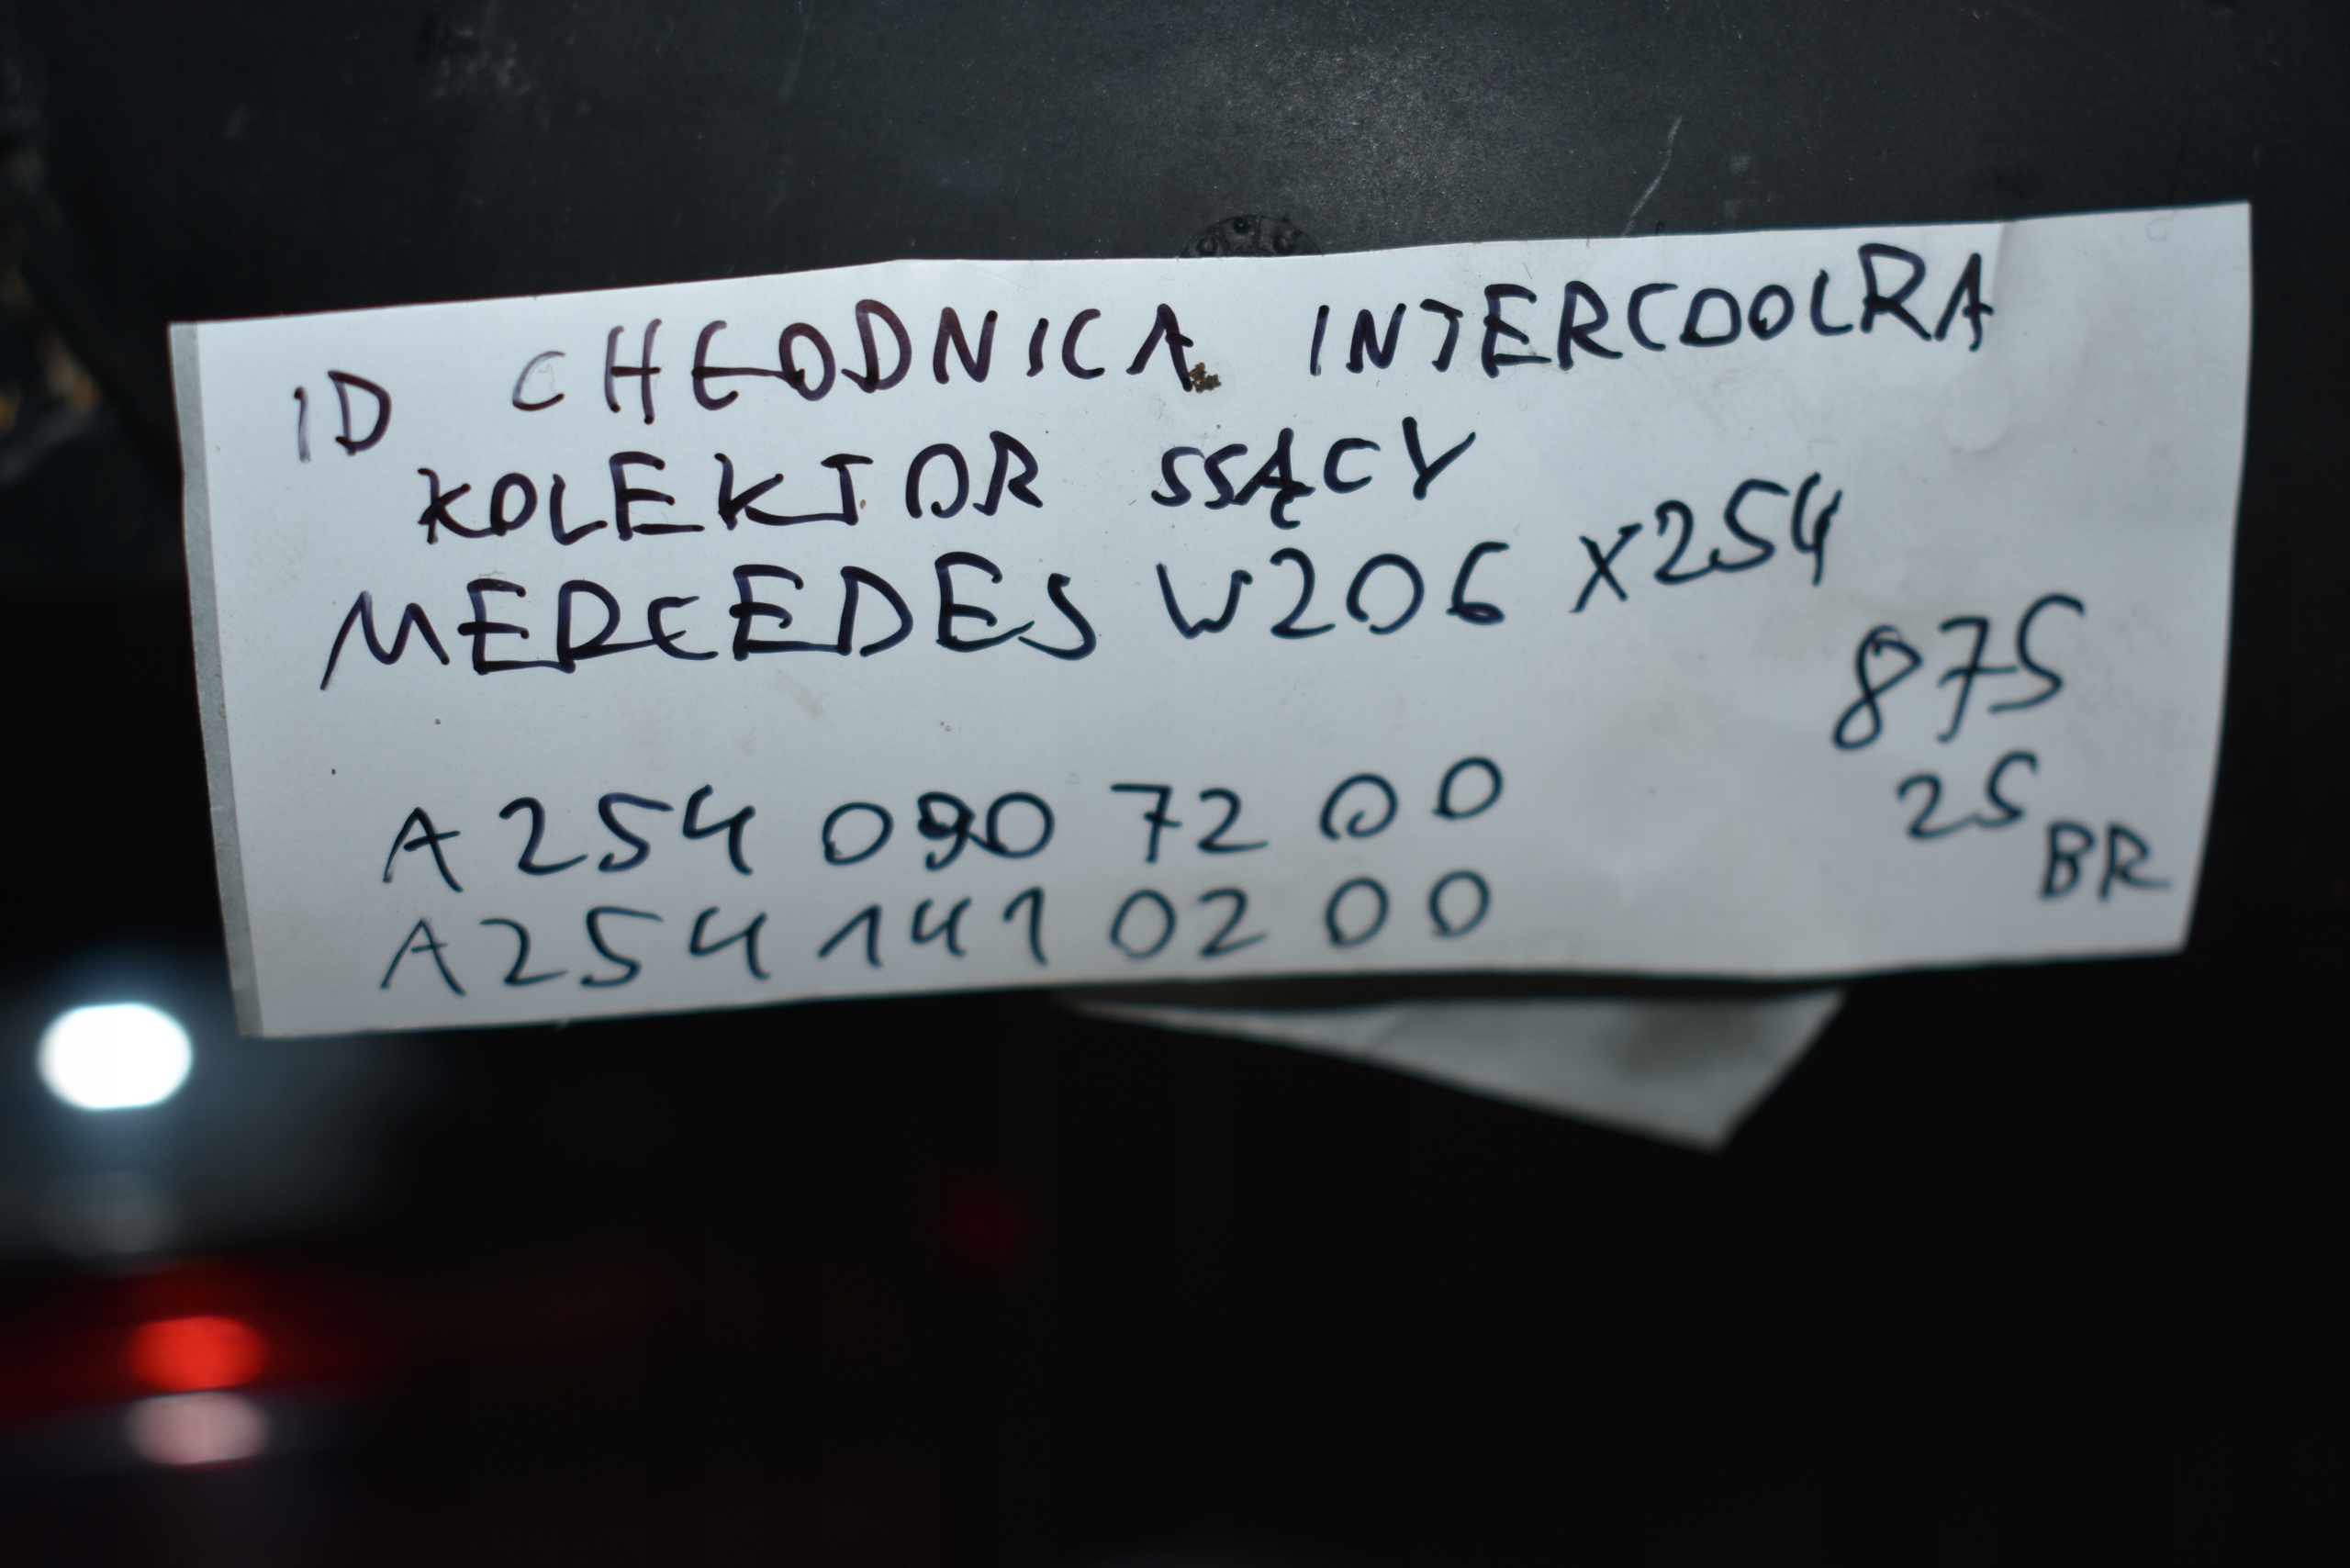 ID CHŁODNICA INTERCOOLRA
KOLEKTOR SSĄCY
MERCEDES W206 X254
875
25
BR
A 254 090 72 00
A 254 141 02 00